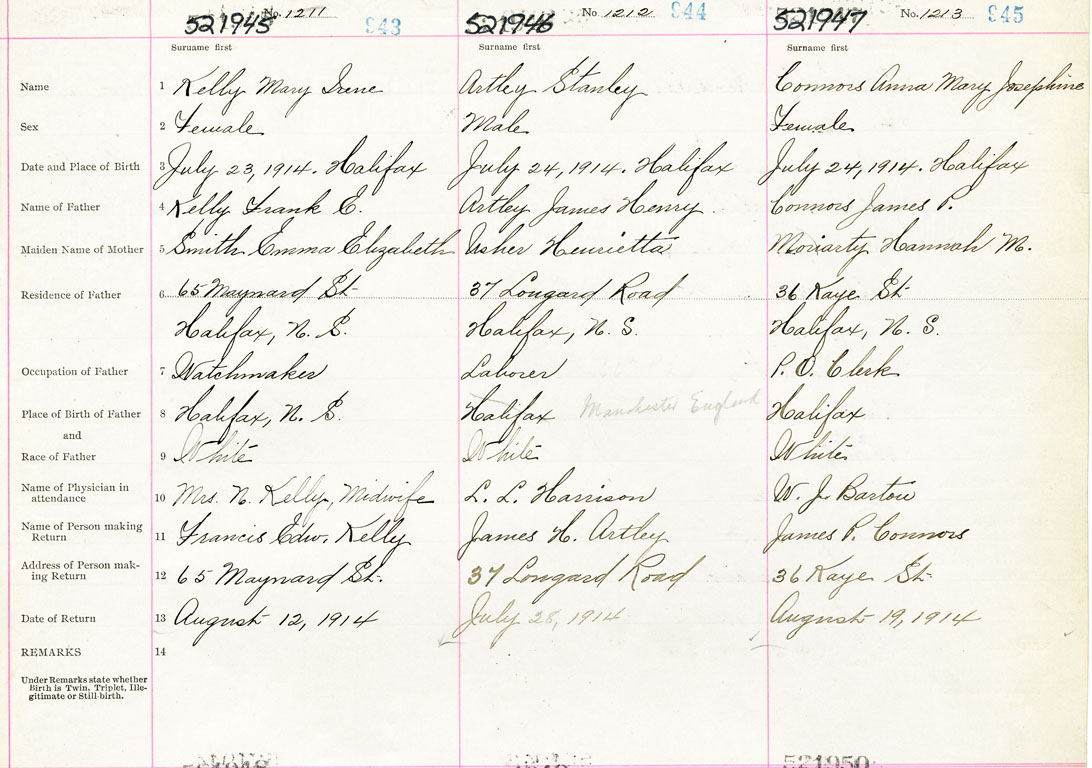 521945 No. 1211 943 521946 No. 1212 944 521947 No. 1213 945
Suruame first Surname first Surname first
Name 1 Kelly Mary Irene Artley Stanley Connors Anna Mary Josephine
Sex 2 Female Male Female
Date and Place of Birth 3 July 23, 1914. Halifax July 24, 1914. Halifax July 24, 1914. Halifax
Name of Father 4 Kelly Frank E. Artley James Henry Connors James P.
Maiden Name of Mother 5 Smith Emma Elizabeth Usher Henrietta Moriarty Hannah M.
Residence of Father 6 65 Maynard St. 37 Longard Road 36 Kaye St
Halifax, N. S. Halifax, N. S. Halifax, N. S.
Occupation of Father 7 Watchmaker Laborer P. O. Clerk
Place of Birth of Father 8 Halifax, N. S. Halifax Manchester England Halifax
and
Race of Father 9 White White White
Name of Physician in
attendance 10 Mrs. N. Kelly, Midwife L. L. Harrison W. J. Barton
Name of Person making
Return 11 Francis Edw. Kelly James H. Artley James P. Connors
Address of Person mak-
ing Return 12 65 Maynard St. 37 Longard Road 36 Kaye St
Date of Return 13 August 12, 1914 July 28, 1914 August 19, 1914
REMARKS 14
Under Remarks state whether
Birth is Twin, Triplet, Ille-
gitimate or Still-birth.
521950